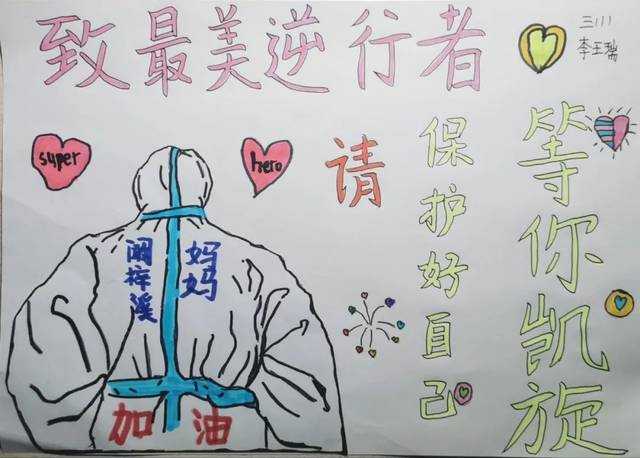 致最美逆行者
三111
李玉瑞
super
hero
请
保护好自己
等你凯旋
阚梓溪
妈妈
加油